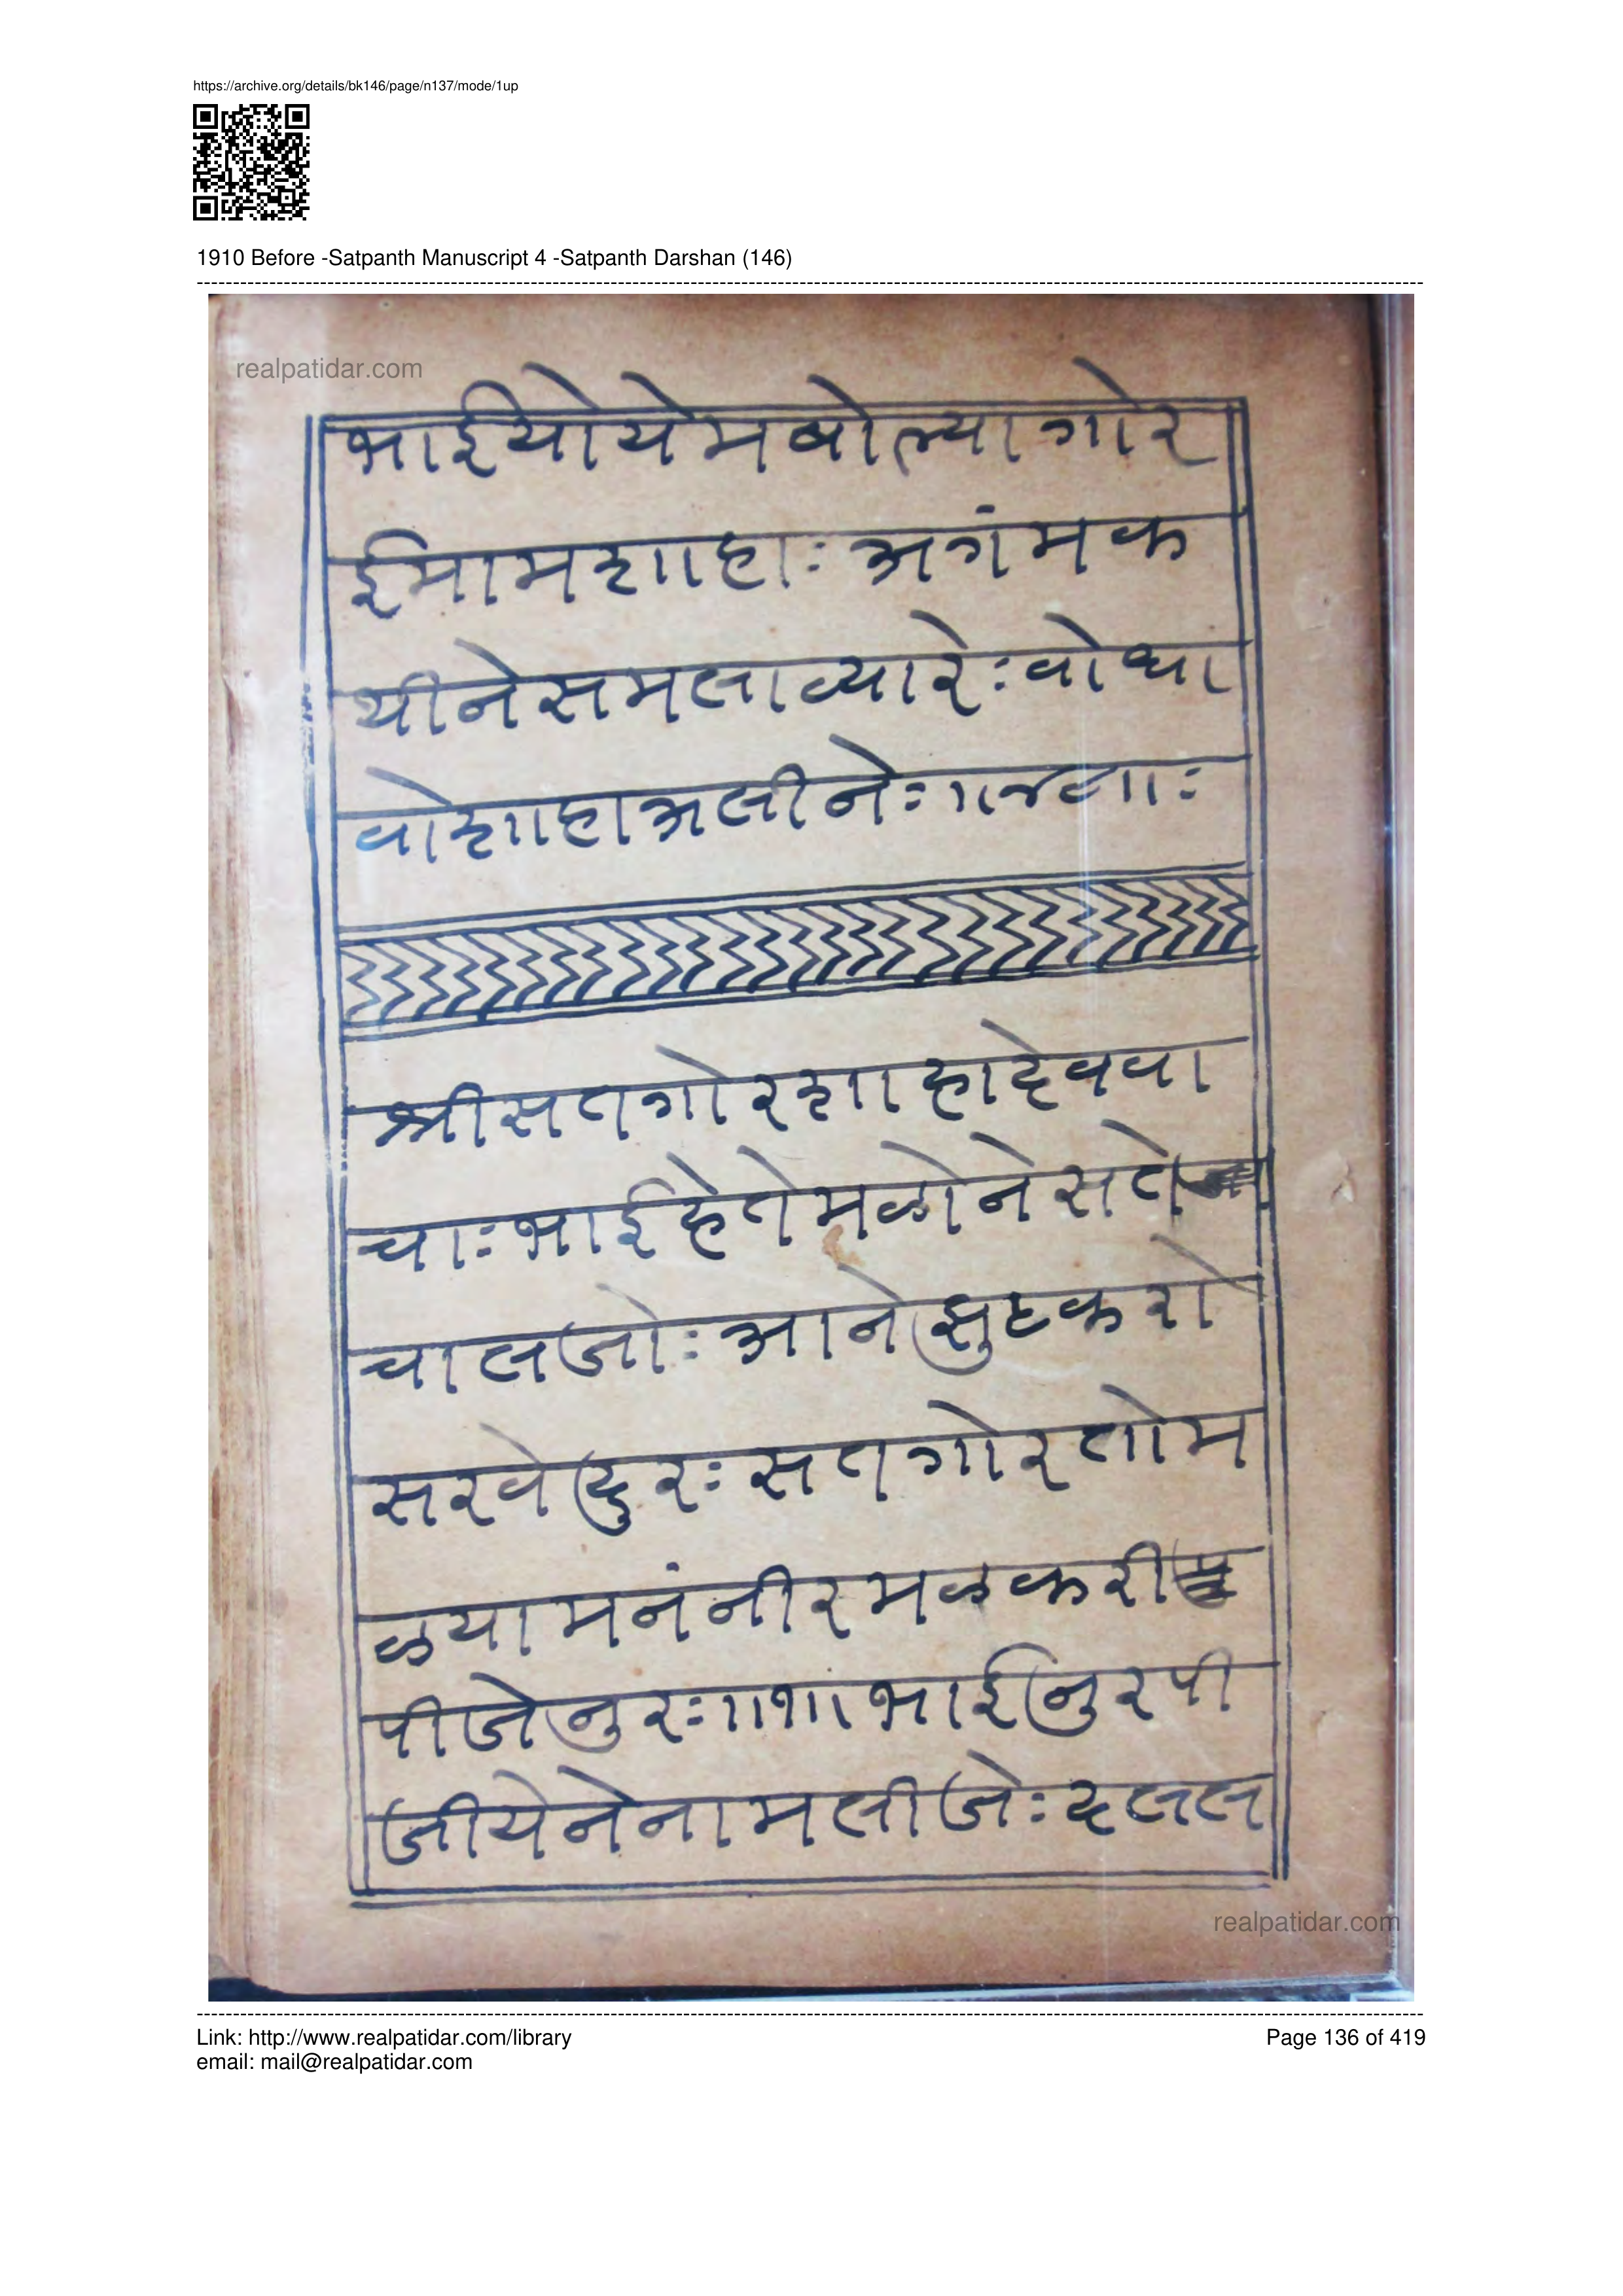 https://archive.org/details/bk146/page/n137/mode/1up
1910 Before -Satpanth Manuscript 4 -Satpanth Darshan (146)
realpatidar.com
भाईयोयेमबोल्यागोर
ईमामशाहाः अगंमक
थीनेसमलाव्यारेःवोधा
वोशाहाअलीनेः
श्रीसतगोरशाहादेववा
चाःभाईहेतेमळोनेसते
चालजोःआनेझुटकरो
सरवेदुरःसतगोरतोम
ळयामनंनीरमळकरी
पीजेनुरः॥१॥भाईनुरपी
जीयेनेनामलीजेःदलल
realpatidar.com
Link: http://www.realpatidar.com/library
Page 136 of 419
email: mail@realpatidar.com